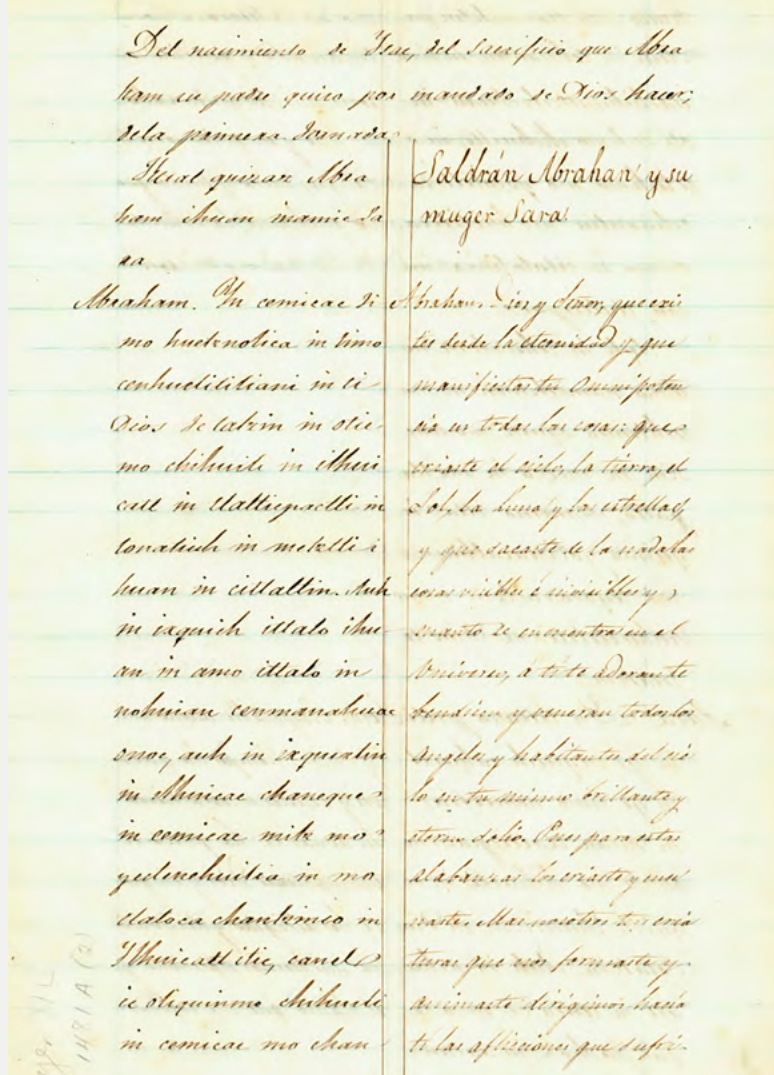 Del nacimiento de Isac, del Sacrificio que Abra
ham su padre quiso por mandado de Dios hacer;
dela primera Jornada.
Hual quizaz Abra
ham ihuan inamic Sa
ra
Abraham. In cemicac ti
mo huetznotica in timo
cenhuelititiani in ti
Dios Te tatzin in otic
mo chihuili in ilhui
catl in tlalticpactli in
tonatiuh in metztli i
huan in citlaltin. Auh
in ixquich ittalo ihu
an in amo ittalo in
nohuian cenmanahuac
onoc, auh in ixquichtin
in Ilhuicac chaneque
in cemicac mitz mo
yectenehuilia in mo
tlatoca chantzinco in
Ilhuicatl itic, canel
ic otiquinmo chihuili
in cemicac mo chan
Saldrán Abrahan y su
muger Sara.
Abrahan. Dios y Señor, que exis
tes desde la eternidad y que
manifiestas tu Omnipoten
cia en todas las cosas: que
criaste el cielo, la tierra, el
Sol, la luna y las estrellas,
y que sacaste de la nada las
cosas visibles é invisibles y
cuanto se encuentra en el
Universo, á ti te adoran te
bendicen y veneran todos los
Angeles y habitantes del cie
lo en tu mismo brillante y
eterno solio. Pues para estas
alabanzas los criaste y
Mas nosotros tus cria
turas que nos formaste y
animaste dirigimos hacia
ti las aflicciones que sufri-
1481 A (2)